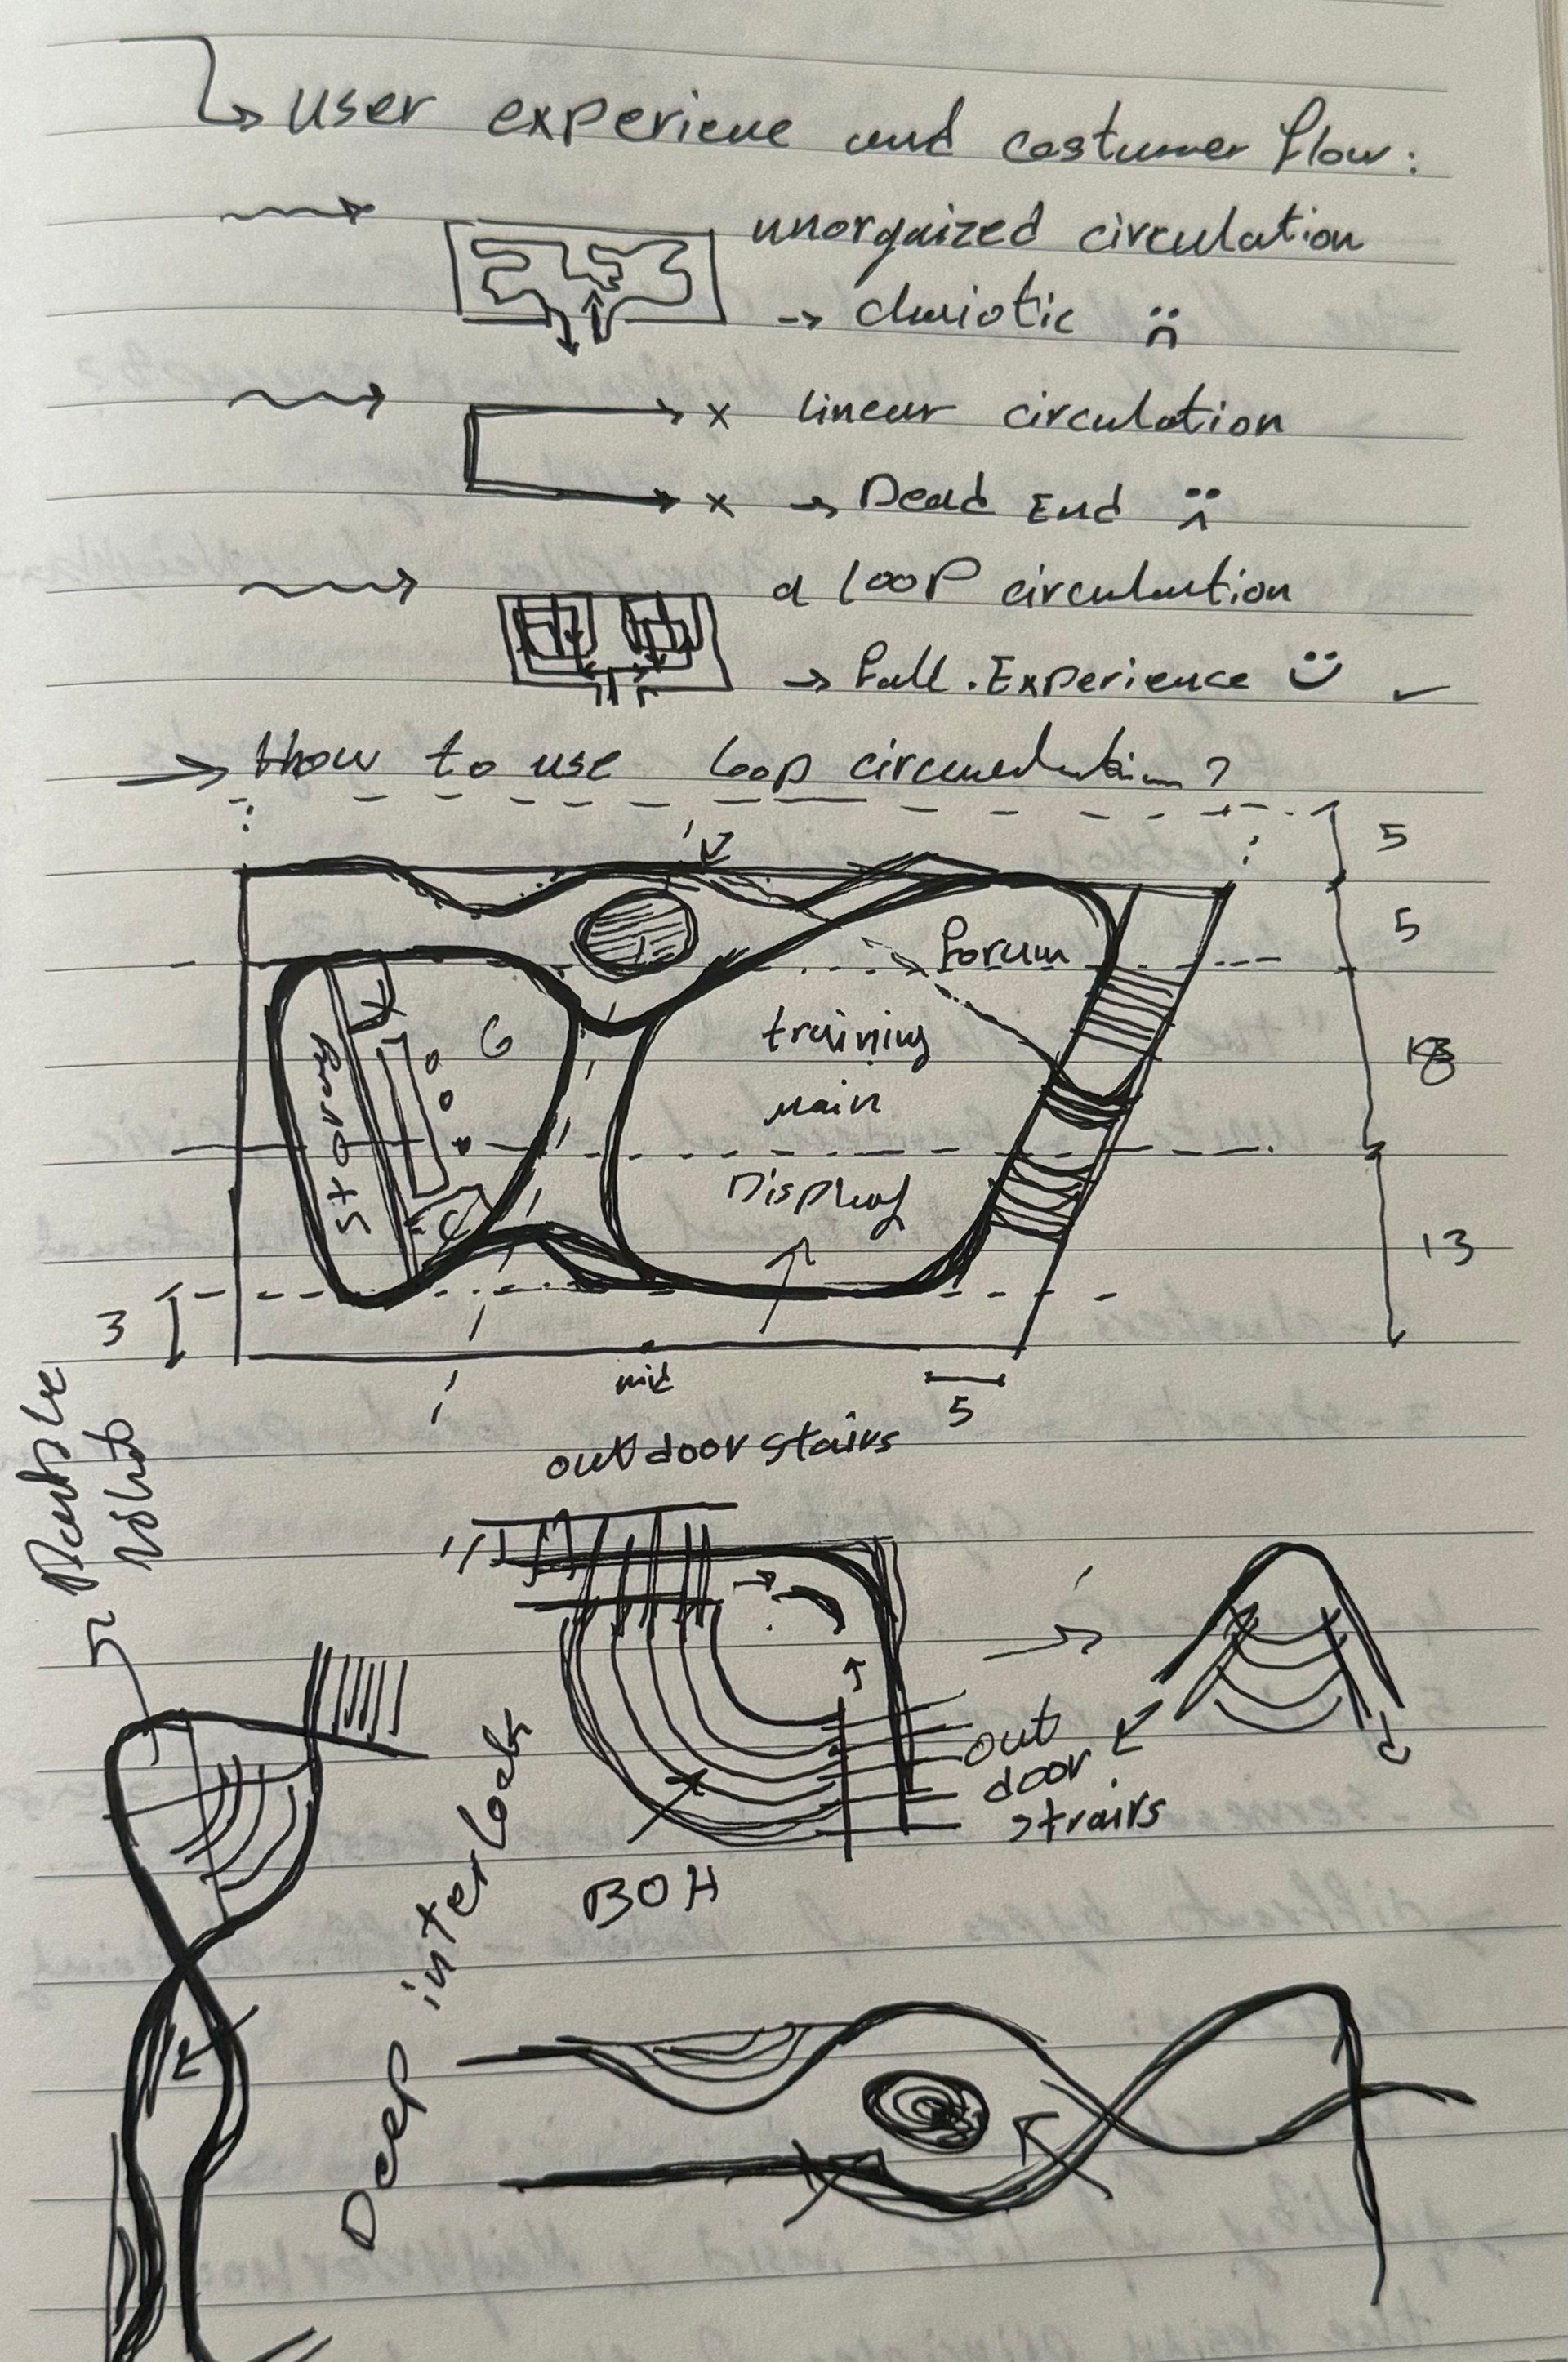 user experieue and costumer flow:
unorgaized circulation
→ chaiotic
linear circulation
x
x
→ Dead End
a loop circulation
→ full. Experience
→ How to use loop circulation?
5
5
forum
training
main
Display
storag
K
G
C
18
13
3
mid
5
outdoor stairs
Double
out
door
strairs
BOH
Deep interlock